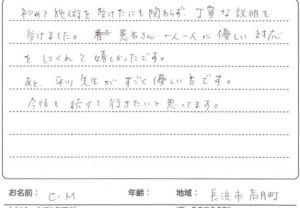 初めて施術を受けたにも関わらず、丁寧な説明を
受けました。患者さん一人一人に優しい対応
をしてくれて嬉しかったです。
あと、平川先生がすごく優しい方です。
今後も続けて行きたいと思ってます。
お名前： C.M 年齢： 地域： 長浜市高月町